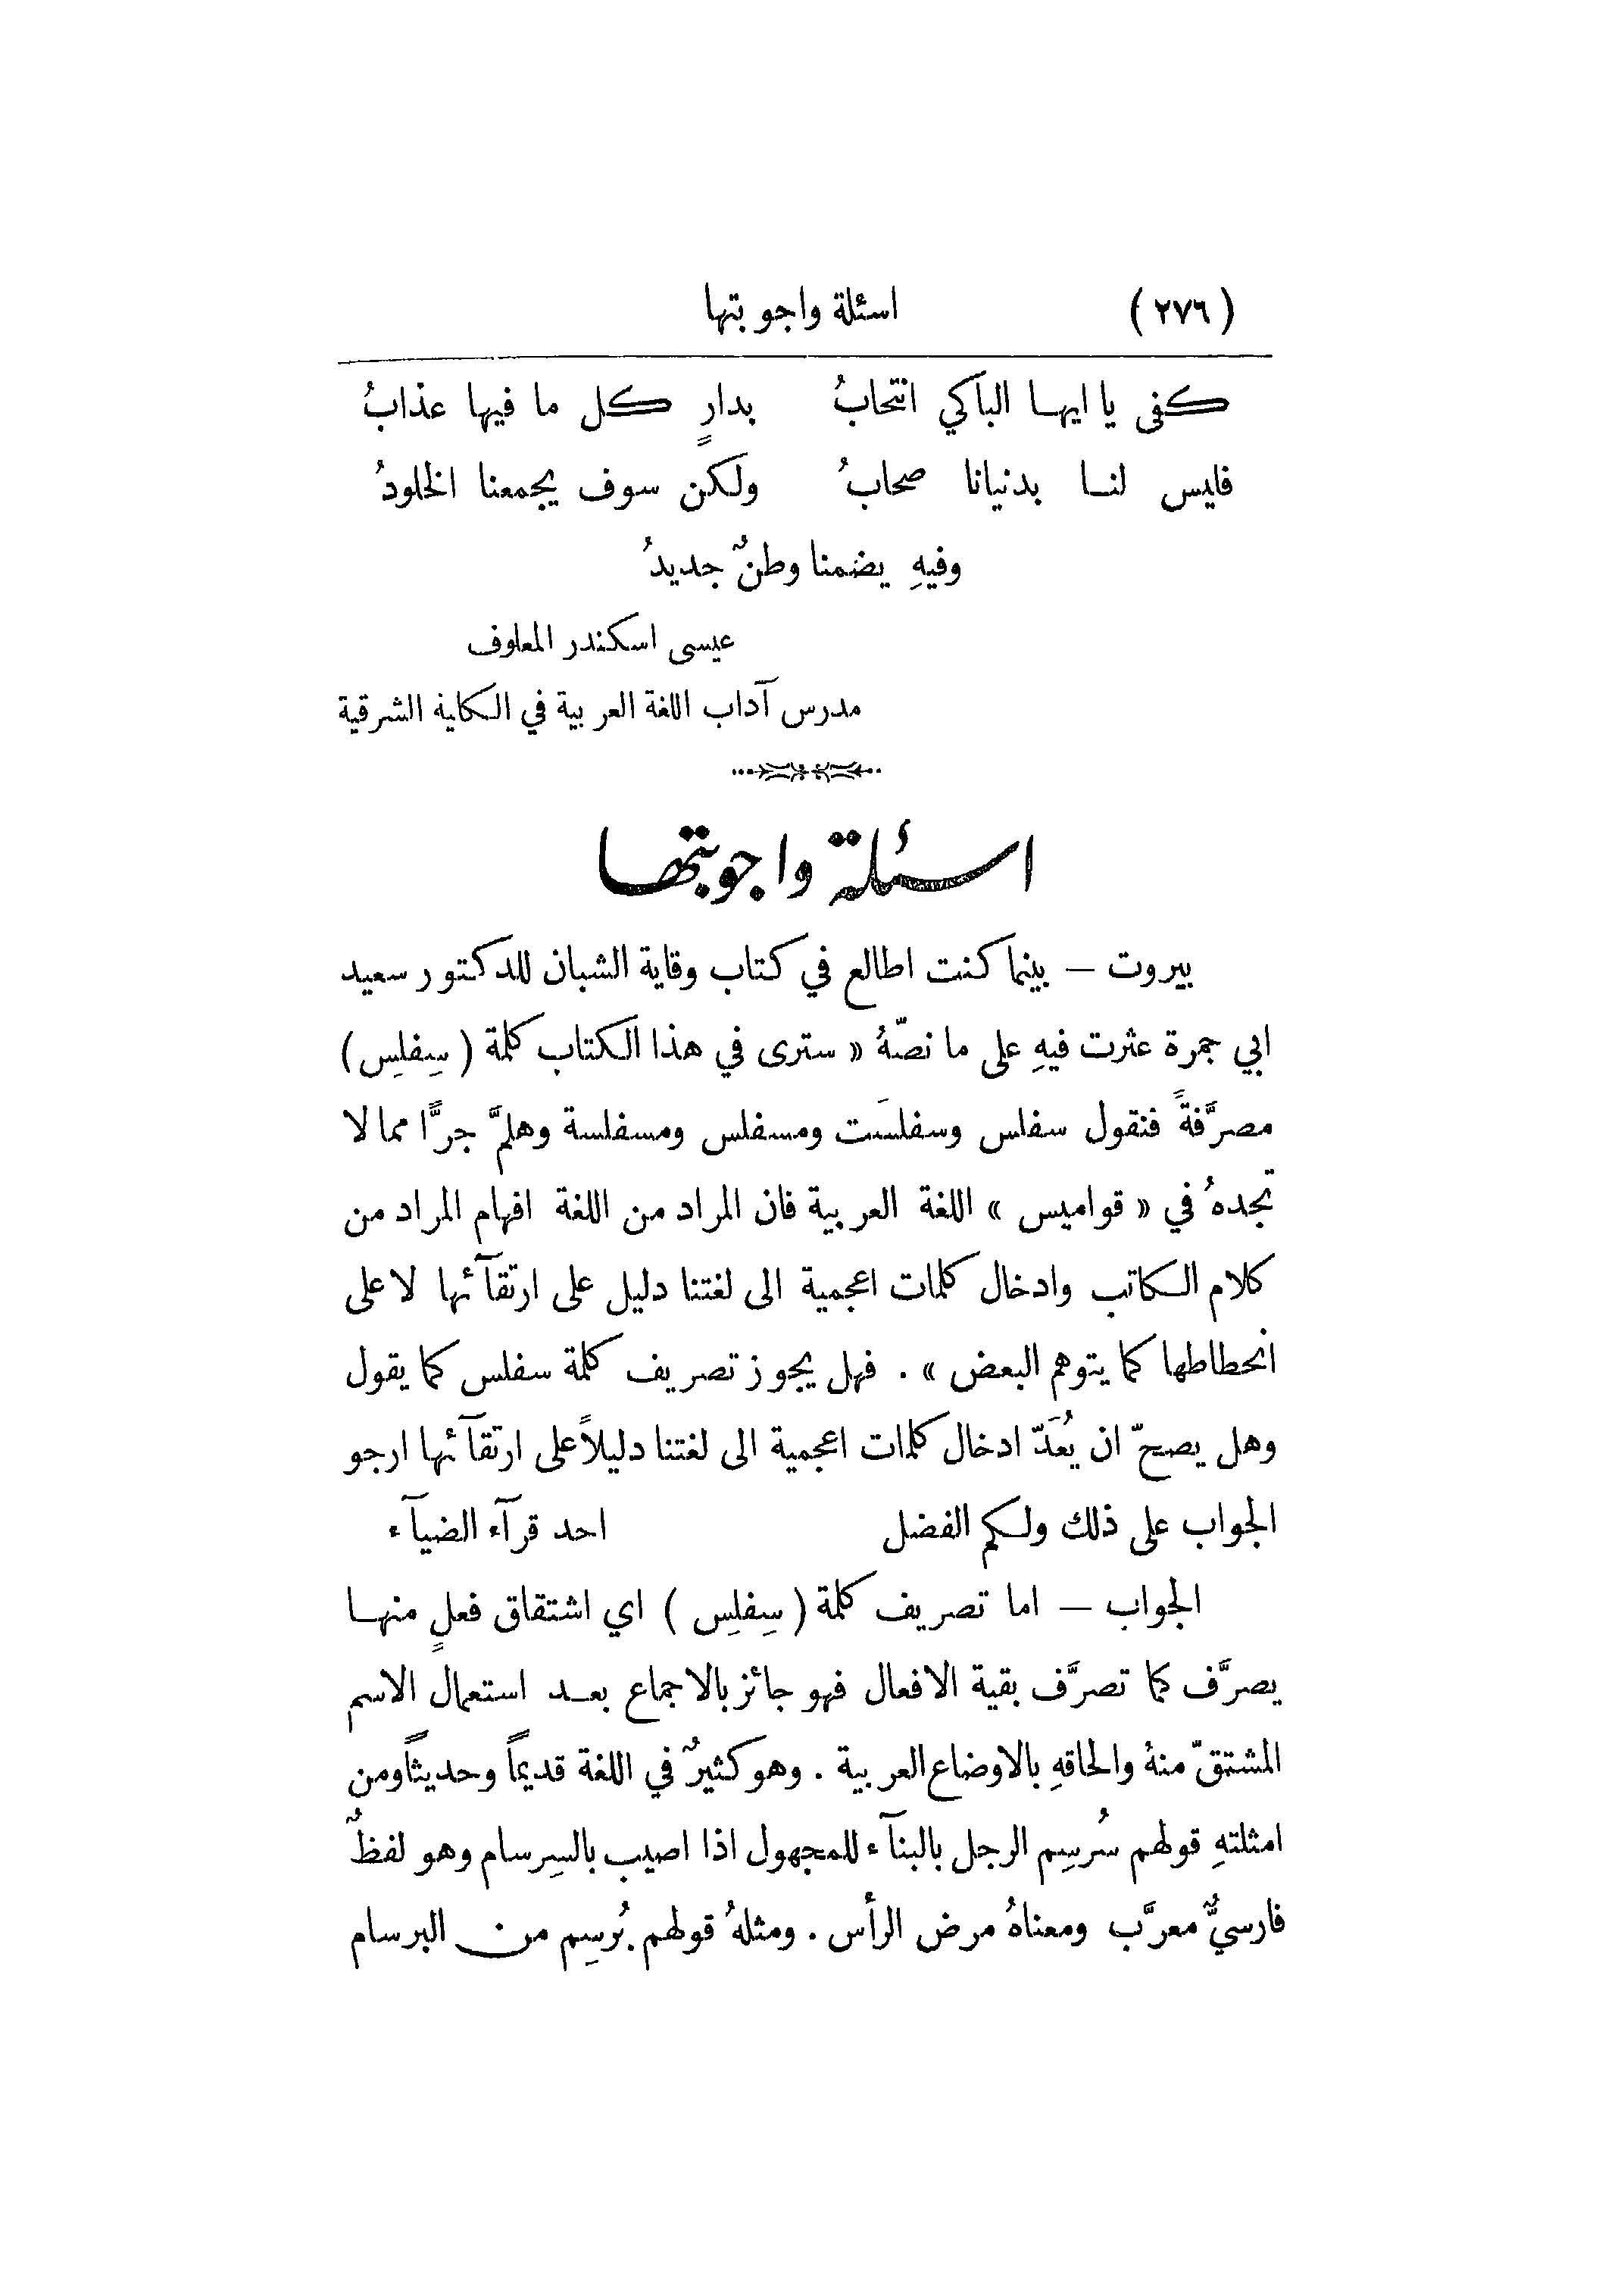 ( ٢٧٦ ) اسئلة واجوبتها
كفى يا ايها الباكي انتحابُ بدارٍ كل ما فيها عذابُ
فليس لنا بدنيانا صحابُ ولكن سوف يجمعنا الخلودُ
وفيهِ يضمنا وطنٌ جديدُ
عيسى اسكندر المعلوف
مدرس آداب اللغة العربية في الكلية الشرقية
اسئلة واجوبتها
بيروت – بينما كنت اطالع في كتاب وقاية الشبان للدكتور سعيد
ابي جمرة عثرت فيهِ على ما نصّهُ « سترى في هذا الكتاب كلمة ( سِفلِس )
مصرَّفةً فنقول سفلس وسفلسَت ومسفلس ومسفلسة وهلمَّ جرًّا مما لا
تجدهُ في « قواميس » اللغة العربية فان المراد من اللغة افهام المراد من
كلام الكاتب وادخال كلمات اعجمية الى لغتنا دليل على ارتقآئها لا على
انحطاطها كما يتوهم البعض » . فهل يجوز تصريف كلمة سفلس كما يقول
وهل يصحّ ان يُعَدّ ادخال كلمات اعجمية الى لغتنا دليلاً على ارتقآئها ارجو
الجواب على ذلك ولكم الفضل احد قرآء الضيآء
الجواب – اما تصريف كلمة ( سِفلِس ) اي اشتقاق فعلٍ منها
يصرَّف كما تصرَّف بقية الافعال فهو جائز بالاجماع بعد استعمال الاسم
المشتقّ منهُ والحاقهِ بالاوضاع العربية . وهو كثيرٌ في اللغة قديماً وحديثاً ومن
امثلتهِ قولهم سُرسِم الرجل بالبنآء للمجهول اذا اصيب بالسِرسام وهو لفظٌ
فارسيٌّ معرَّب ومعناهُ مرض الرأس . ومثلهُ قولهم بُرسِم من البرسام